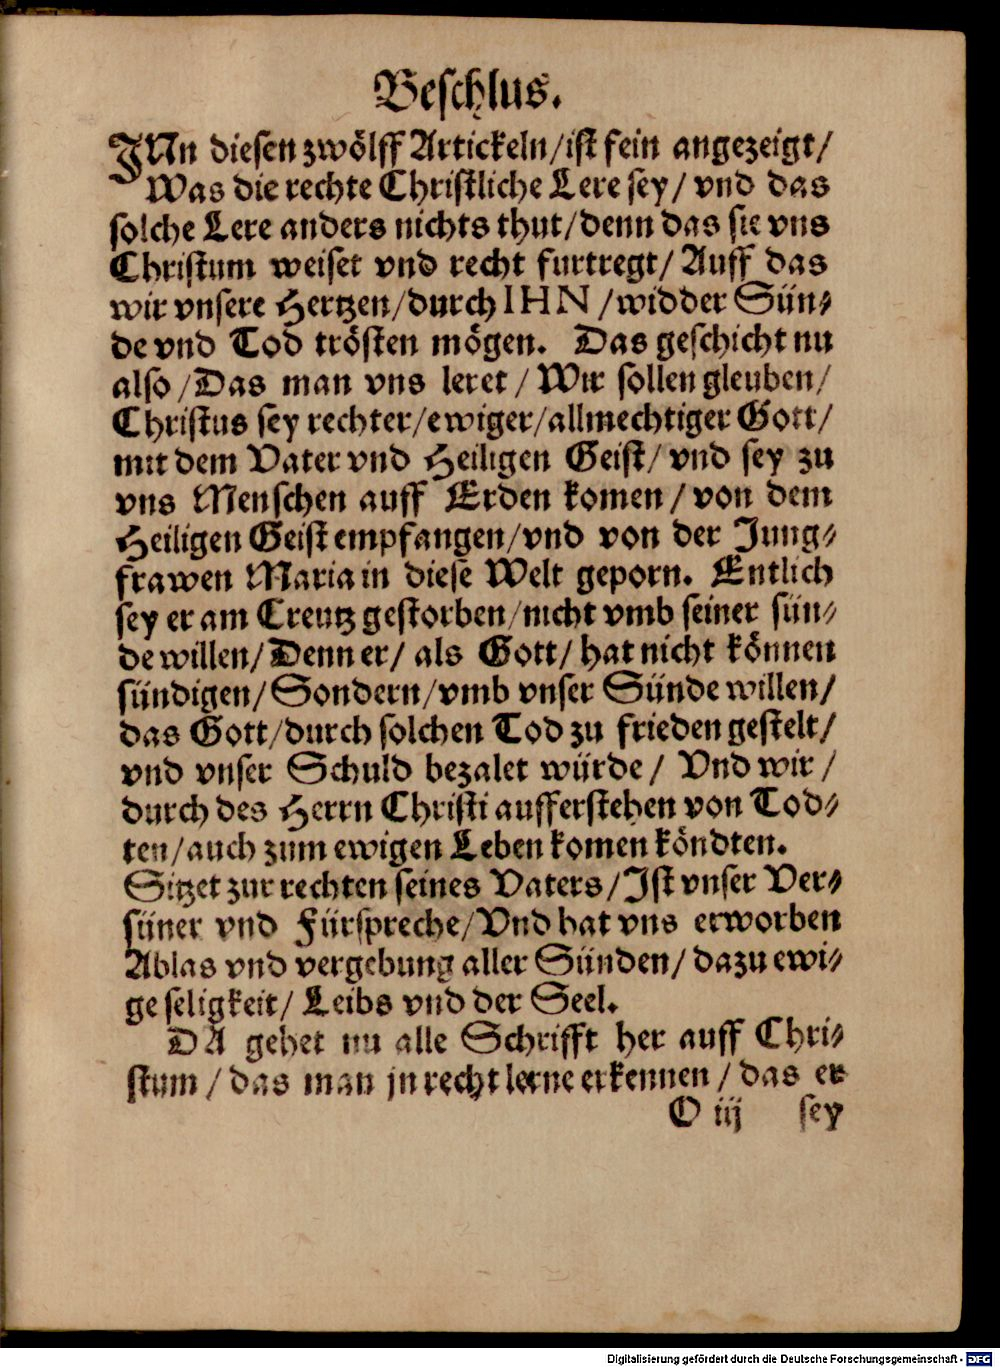 Beschlus.
JNn diesen zwölff Artickeln/ist fein angezeigt/
Was die rechte Christliche Lere sey/ vnd das
solche Lere anders nichts thut/denn das sie vns
Christum weiset vnd recht furtregt/ Auff das
wir vnsere Hertzen/durch IHN /widder Sün⸗
de vnd Tod trösten mögen. Das geschicht nu
also /Das man vns leret / Wir sollen gleuben/
Christus sey rechter/ewiger/allmechtiger Gott/
mit dem Vater vnd Heiligen Geist/ vnd sey zu
vns Menschen auff Erden komen / von dem
Heiligen Geist empfangen/vnd von der Jung⸗
frawen Maria in diese Welt geporn. Entlich
sey er am Creutz gestorben/nicht vmb seiner sün⸗
de willen/ Denn er/ als Gott/ hat nicht können
sündigen/ Sondern/vmb vnser Sünde willen/
das Gott/durch solchen Tod zu frieden gestelt/
vnd vnser Schuld bezalet würde/ Vnd wir /
durch des Herrn Christi aufferstehen von Tod⸗
ten/auch zum ewigen Leben komen köndten.
Sitzet zur rechten seines Vaters/Jst vnser Ver⸗
süner vnd Fürspreche/Vnd hat vns erworben
Ablas vnd vergebung aller Sünden/ dazu ewi⸗
ge seligkeit/ Leibs vnd der Seel.
DA gehet nu alle Schrifft her auff Chri⸗
stum / das man jn recht lerne erkennen / das er
O iij sey
Digitalisierung gefördert durch die Deutsche Forschungsgemeinschaft - DFG